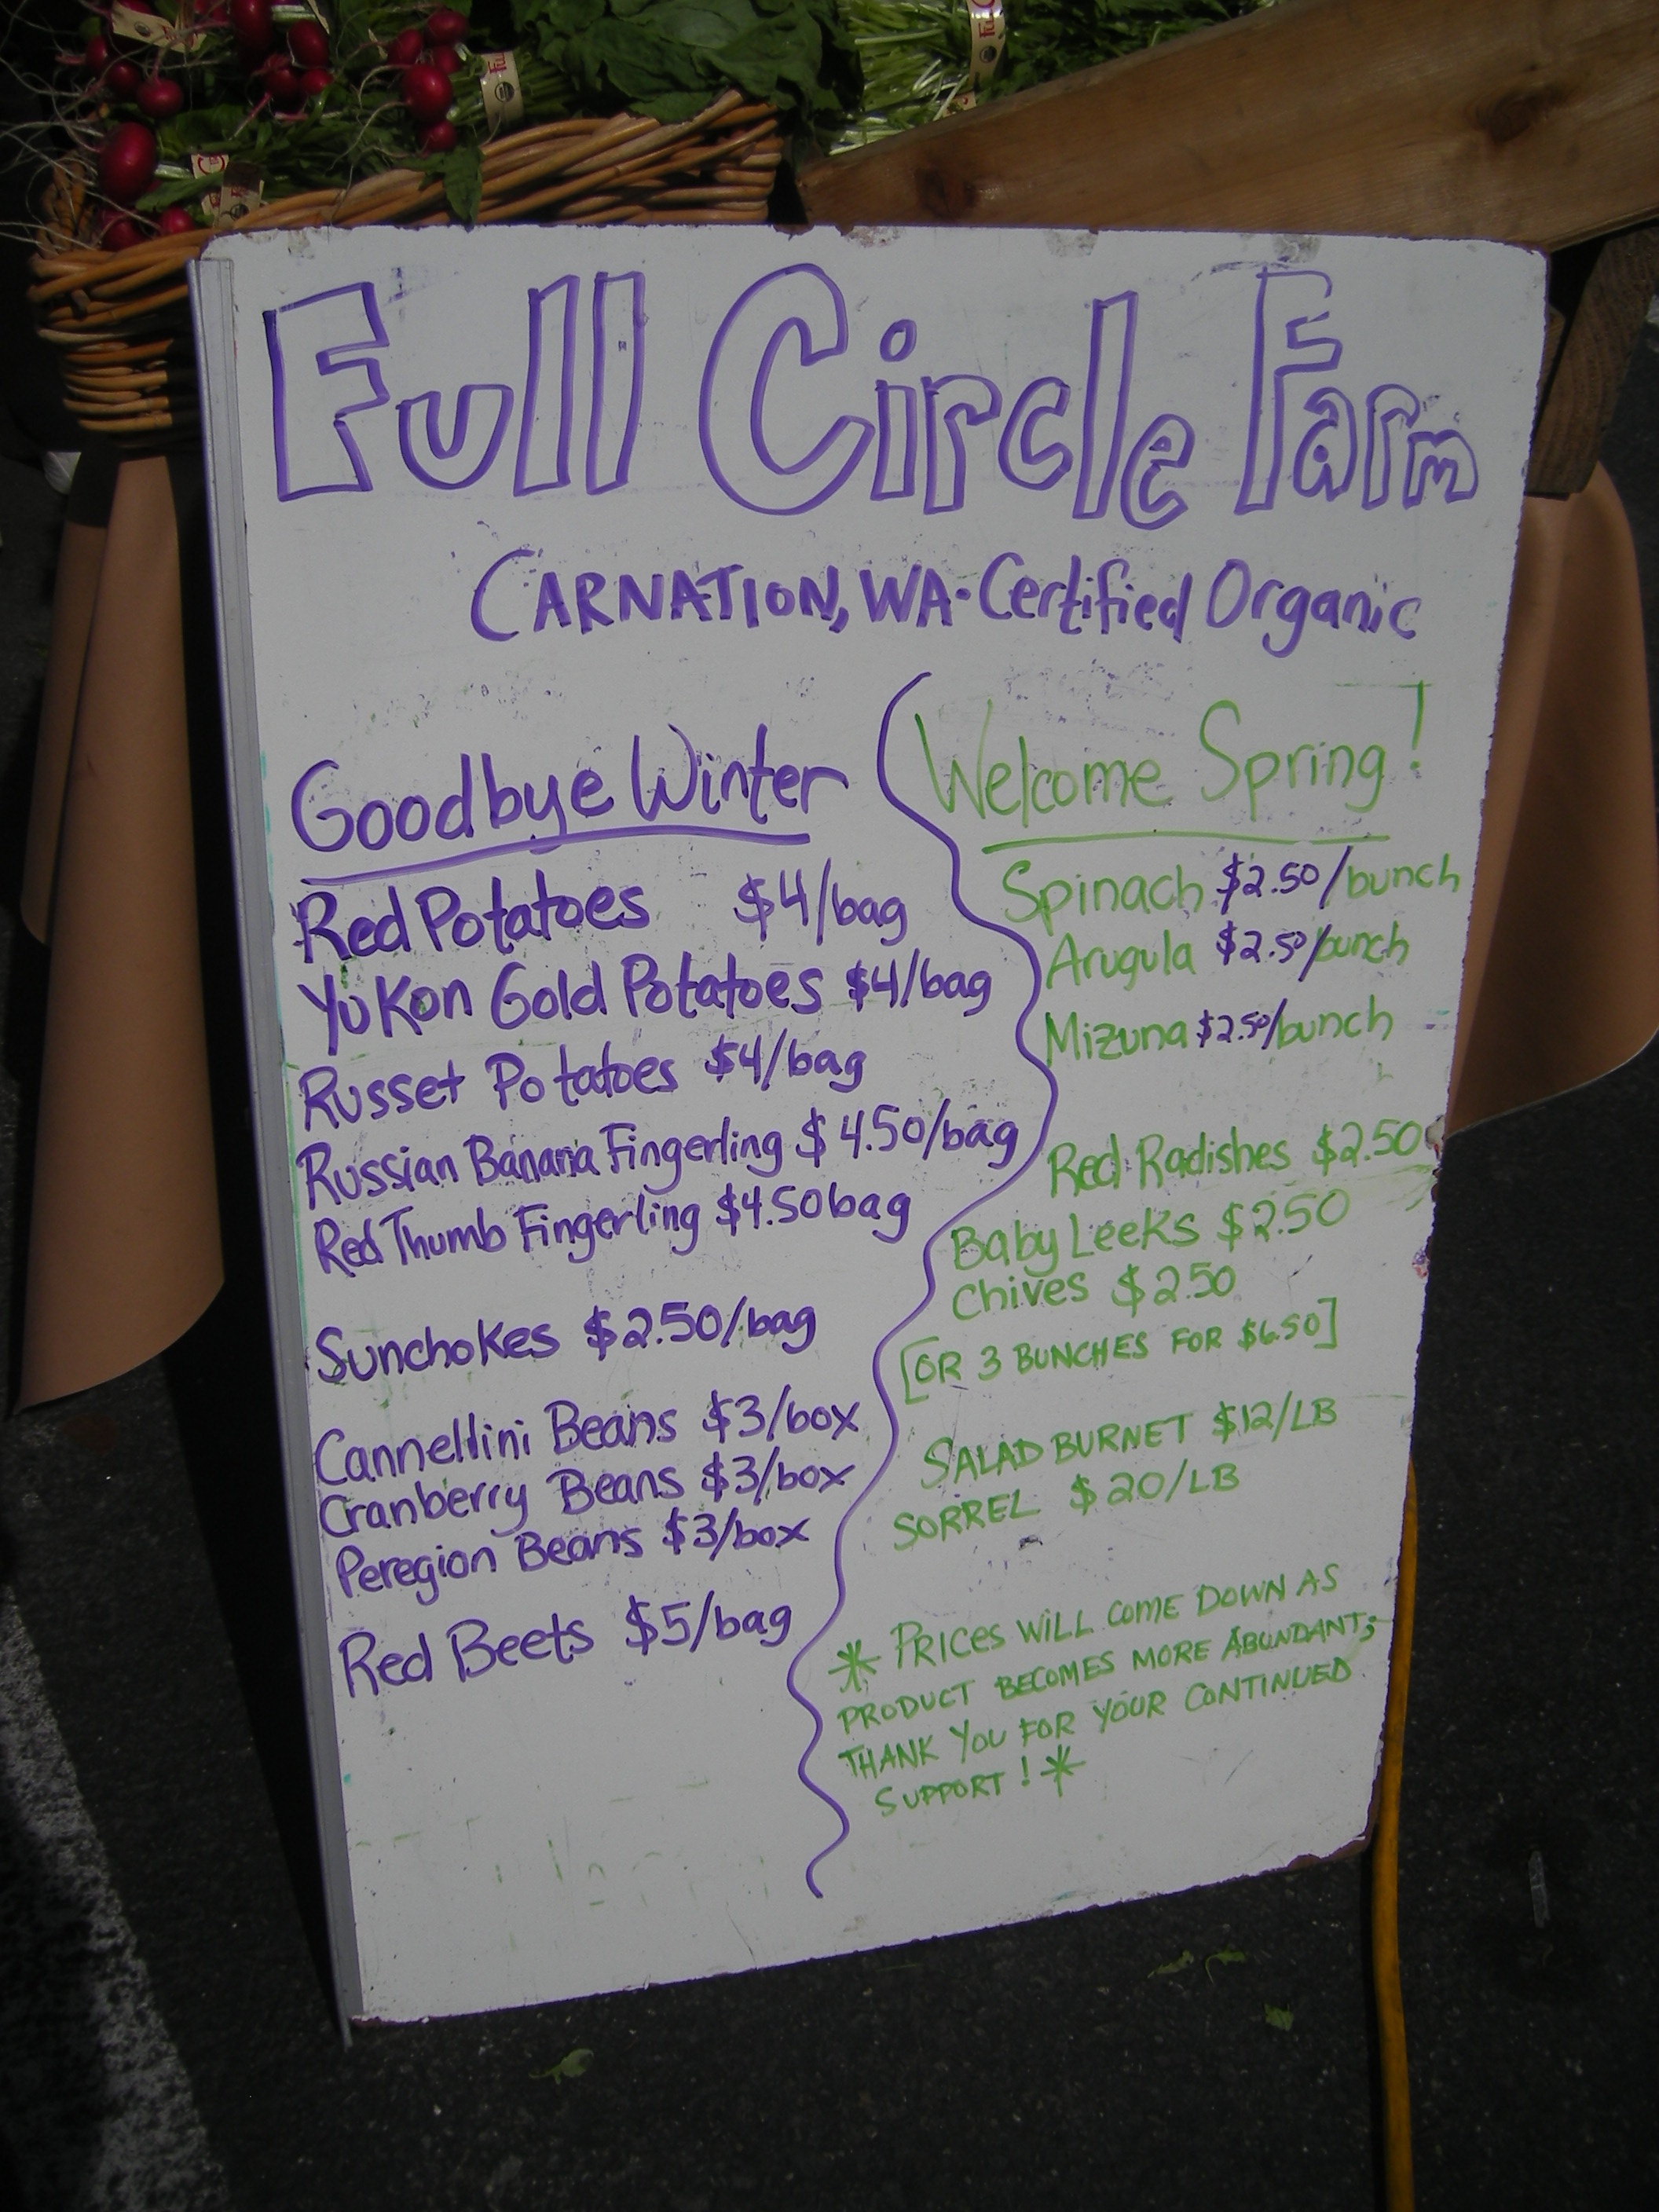 Full Circle Farm
CARNATION, WA • Certified Organic
Goodbye Winter
Red Potatoes $4/bag
Yukon Gold Potatoes $4/bag
Russet Potatoes $4/bag
Russian Banana Fingerling $4.50/bag
Red Thumb Fingerling $4.50 bag
Sunchokes $2.50/bag
Cannellini Beans $3/box
Cranberry Beans $3/box
Peregion Beans $3/box
Red Beets $5/bag
Welcome Spring!
Spinach $2.50/bunch
Arugula $2.50/bunch
Mizuna $2.50/bunch
Red Radishes $2.50
Baby Leeks $2.50
Chives $2.50
[OR 3 BUNCHES FOR $6.50]
SALAD BURNET $12/LB
SORREL $20/LB
* PRICES WILL COME DOWN AS
PRODUCT BECOMES MORE ABUNDANT;
THANK YOU FOR YOUR CONTINUED
SUPPORT! *